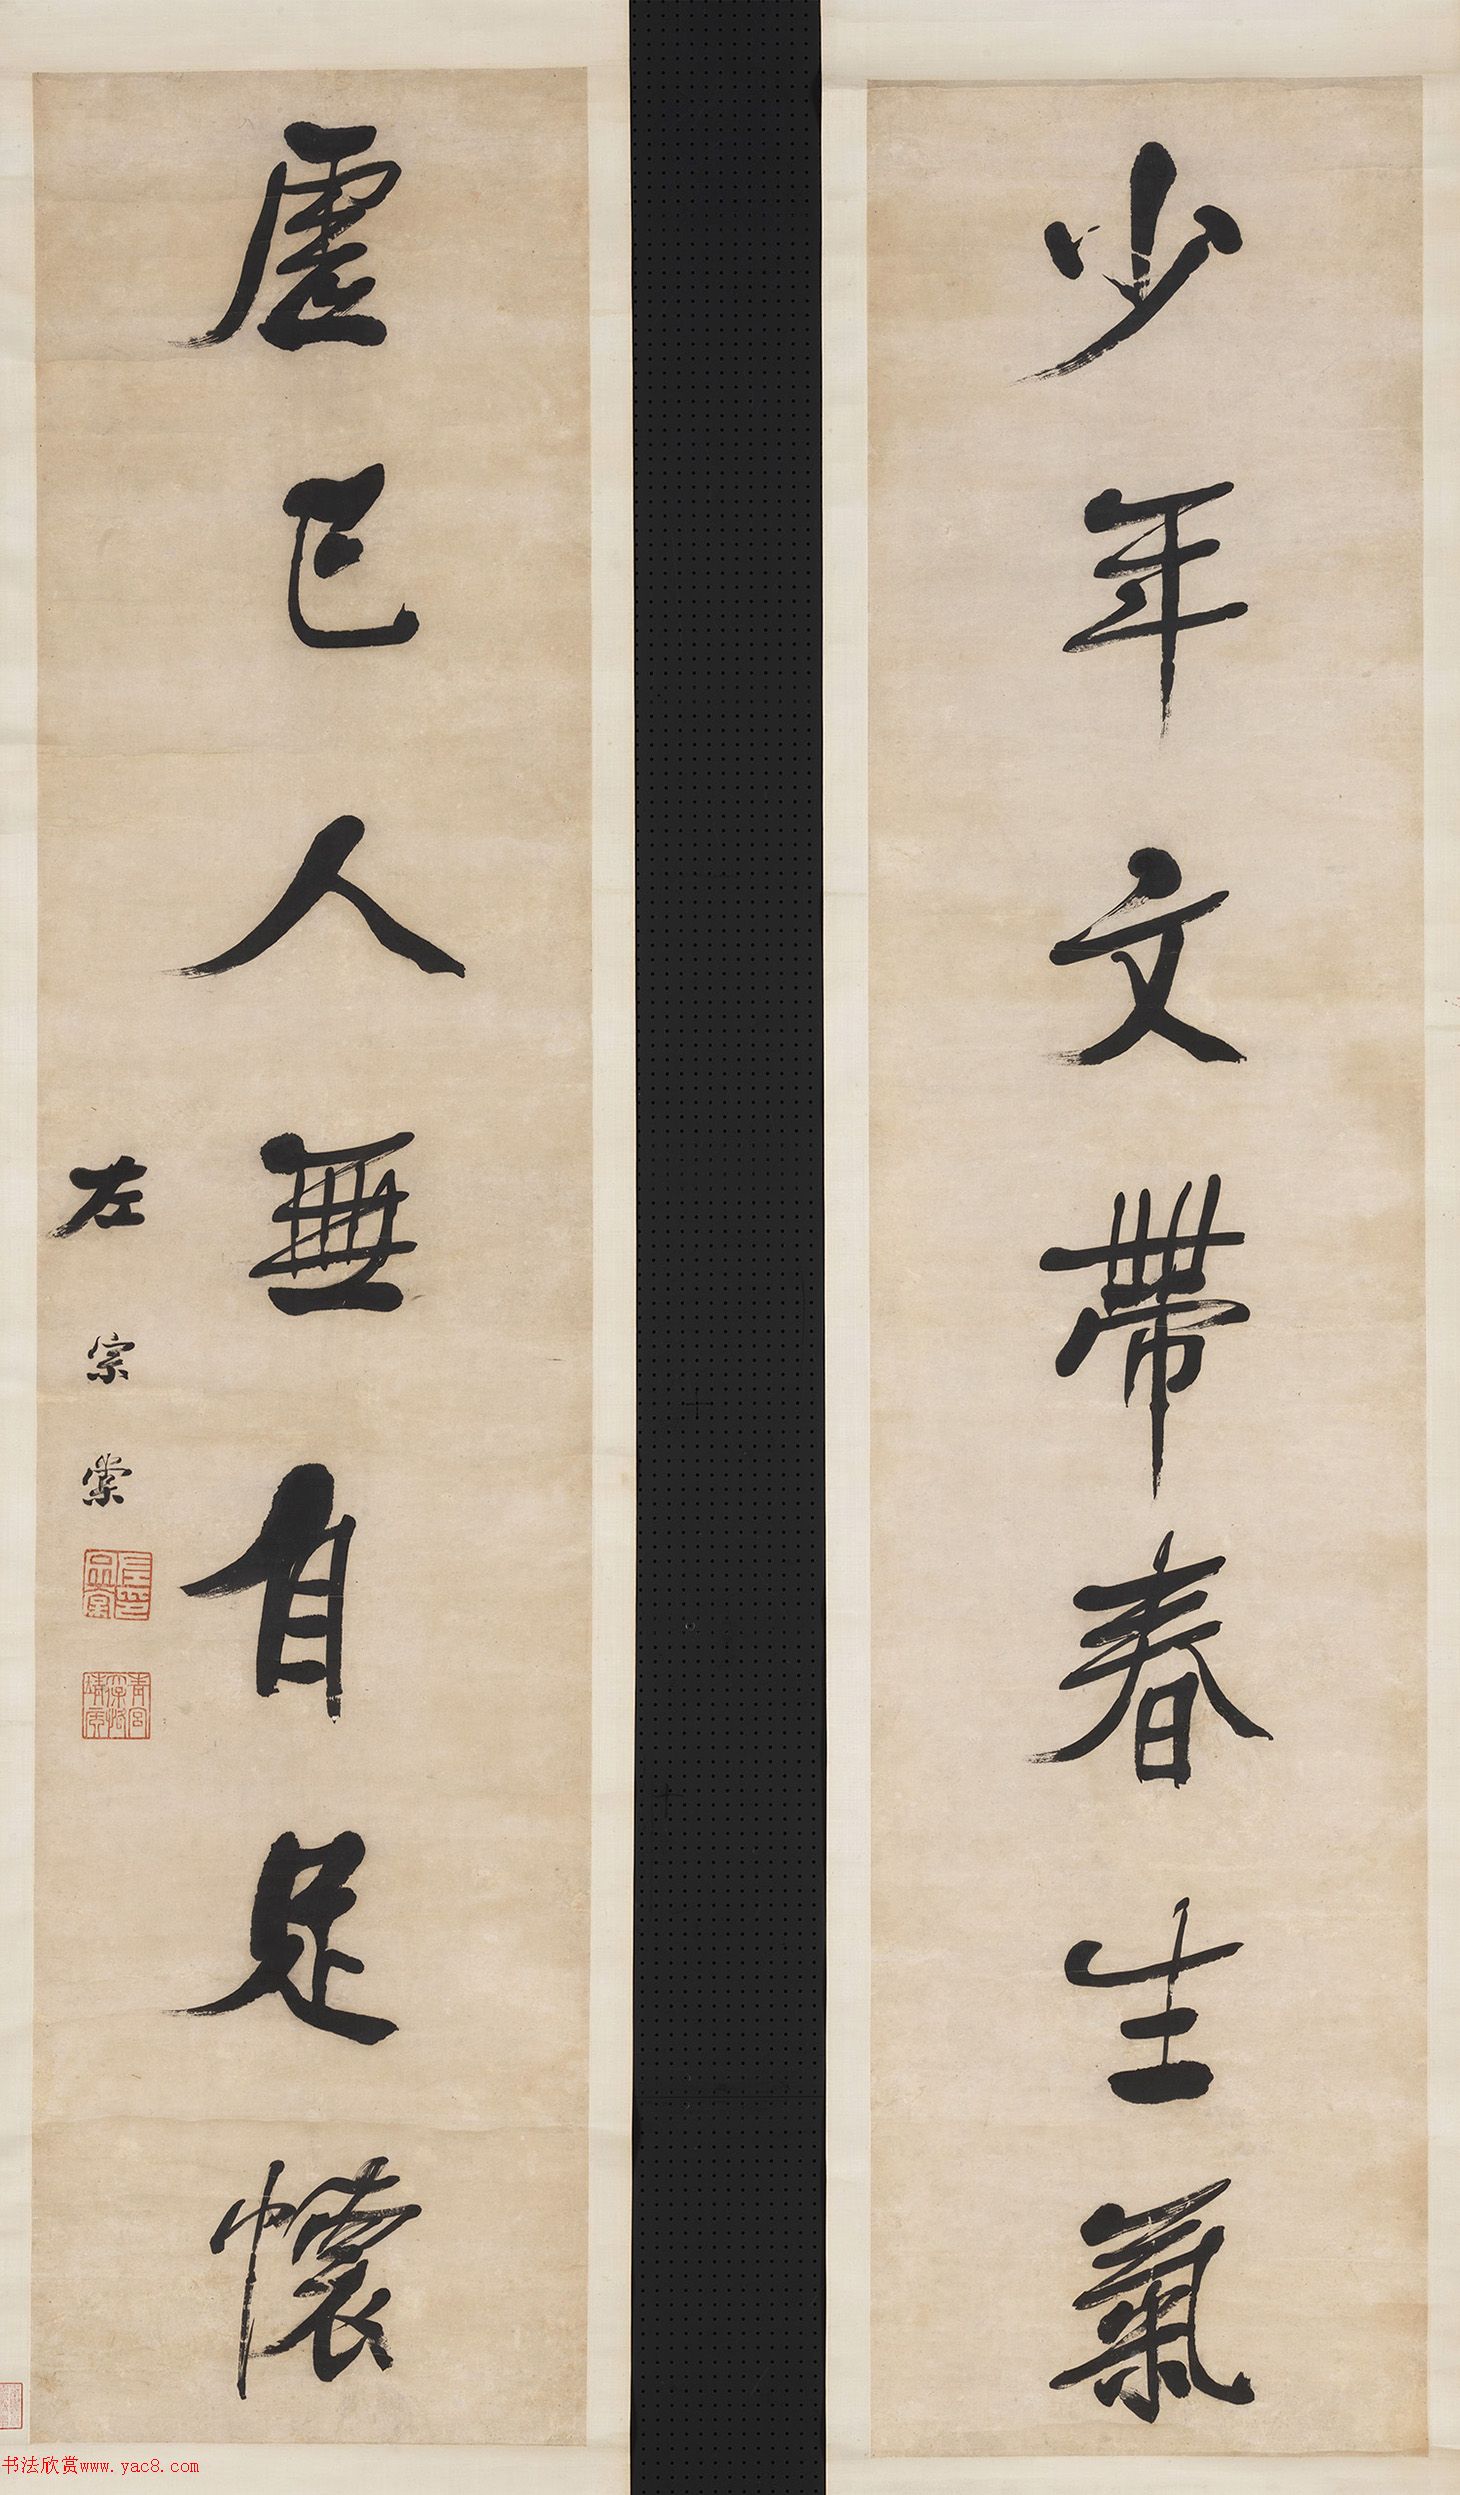 少年文帶春生氣
虛己人無自足懷
左宗棠
书法欣赏www.yac8.com